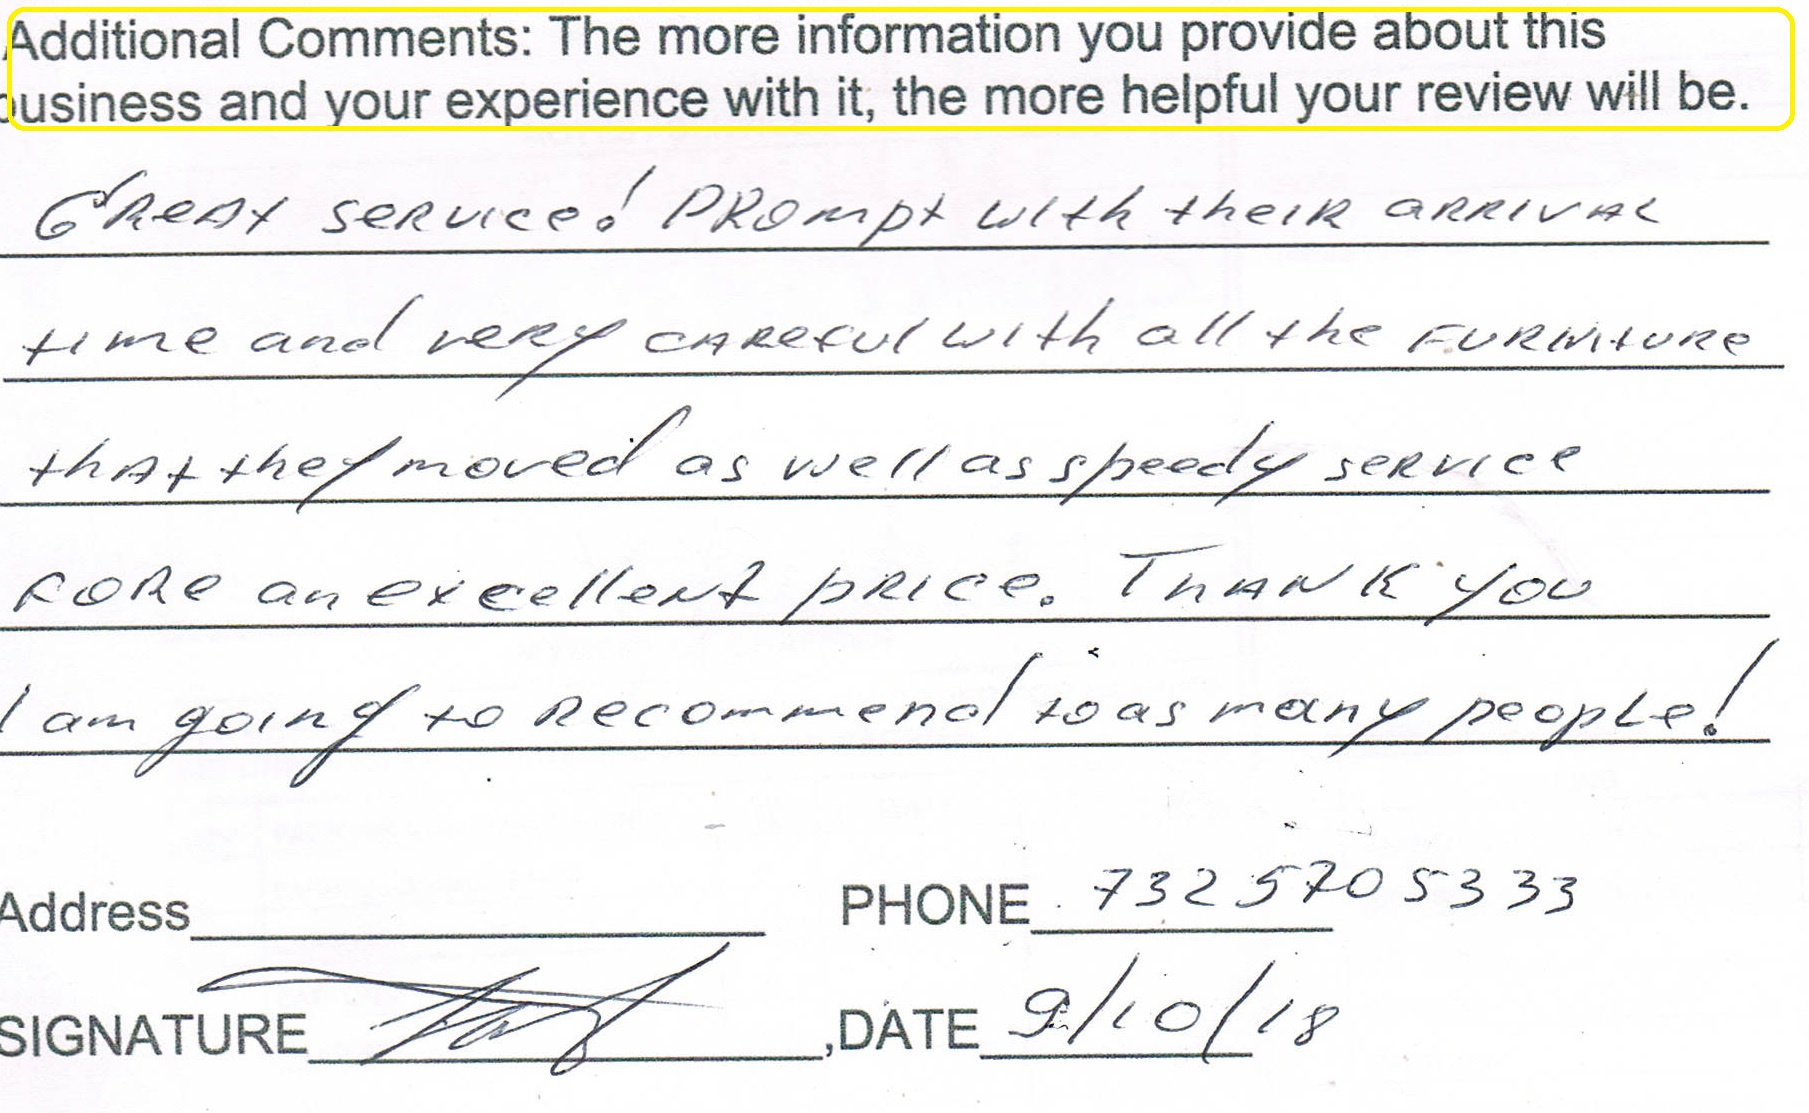 Additional Comments: The more information you provide about this
business and your experience with it, the more helpful your review will be.
Great service! Prompt with their arrival
time and very careful with all the furniture
that they moved as well as speedy service
fore an excellent price. Thank you
I am going to recommend to as many people!
Address
PHONE 7325705333
SIGNATURE
,DATE 9/10/18